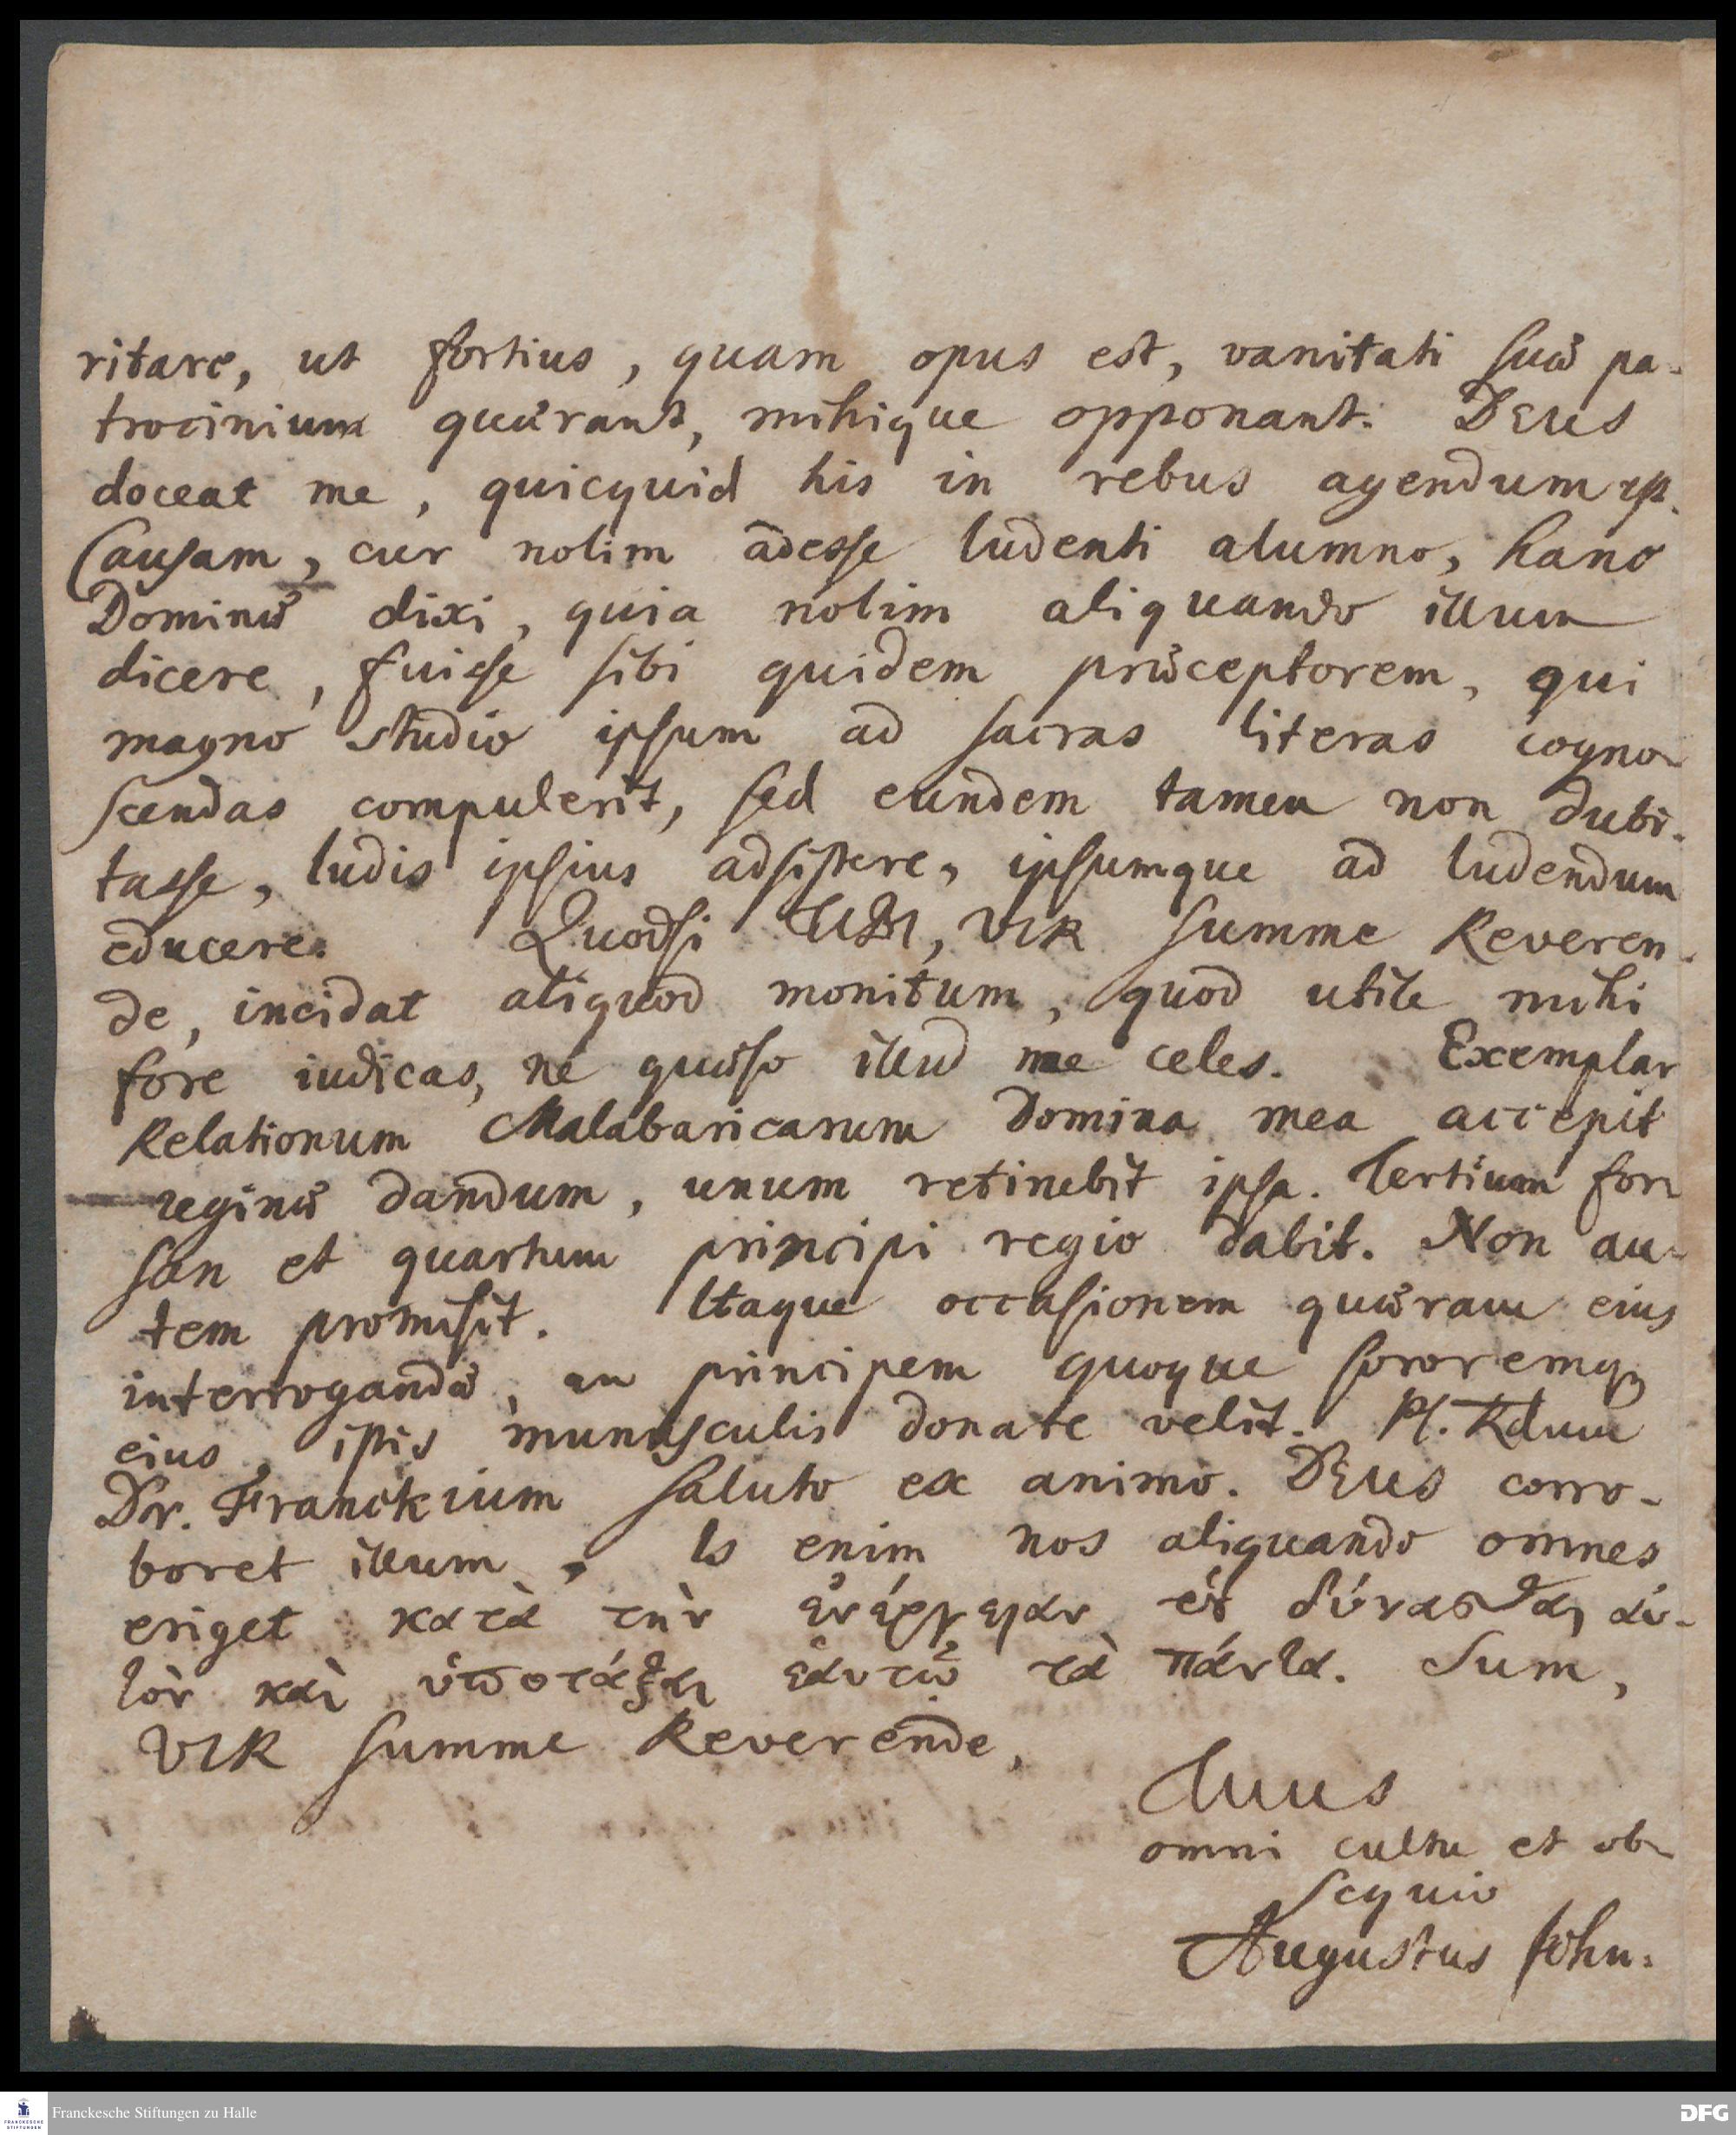 ritare, ut fortius, quam opus est, vanitati suæ pa-
trocinium quærant, mihique opponant. DEUS
doceat me, quicquid his in rebus agendum est.
Causam, cur nolim adesse ludenti alumno, hanc
Dominæ dixi, quia nolim aliquando illum
dicere, fuisse sibi quidem præceptorem, qui
magno studio ipsum ad sacras literas cogno-
scendas compulerit, sed eundem tamen non dubi-
tasse, ludis ipsius adsistere, ipsumque ad ludendum
educere. Quodsi TIBI, VIR summe Reveren-
de, incidat aliquod monitum, quod utile mihi
fore iudicas, ne quæso illud me celes. Exemplar
Relationum Malabaricarum Domina mea accepit
reginæ dandum, unum retinebit ipsa. Tertium for-
san et quartum principi regio dabit. Non au-
tem promisit. Itaque occasionem quæram eius
interrogandæ, an principem quoque sororemq;
eius, istis munusculis donare velit. Pl. Rdum
Dr. Franckium saluto ex animo. DEUS corro-
boret illum. Is enim nos aliquando omnes
eriget κατὰ τὴν ἐνέργειαν τοῦ δύνασθαι αὐ-
τὸν καὶ ὑποτάξαι ἑαυτῷ τὰ πάντα. Sum,
VIR summe Reverende,
Tuus
omni cultu et ob-
sequio
Augustus John.
Franckesche Stiftungen zu Halle
FRANCKESCHE
STIFTUNGEN
DFG